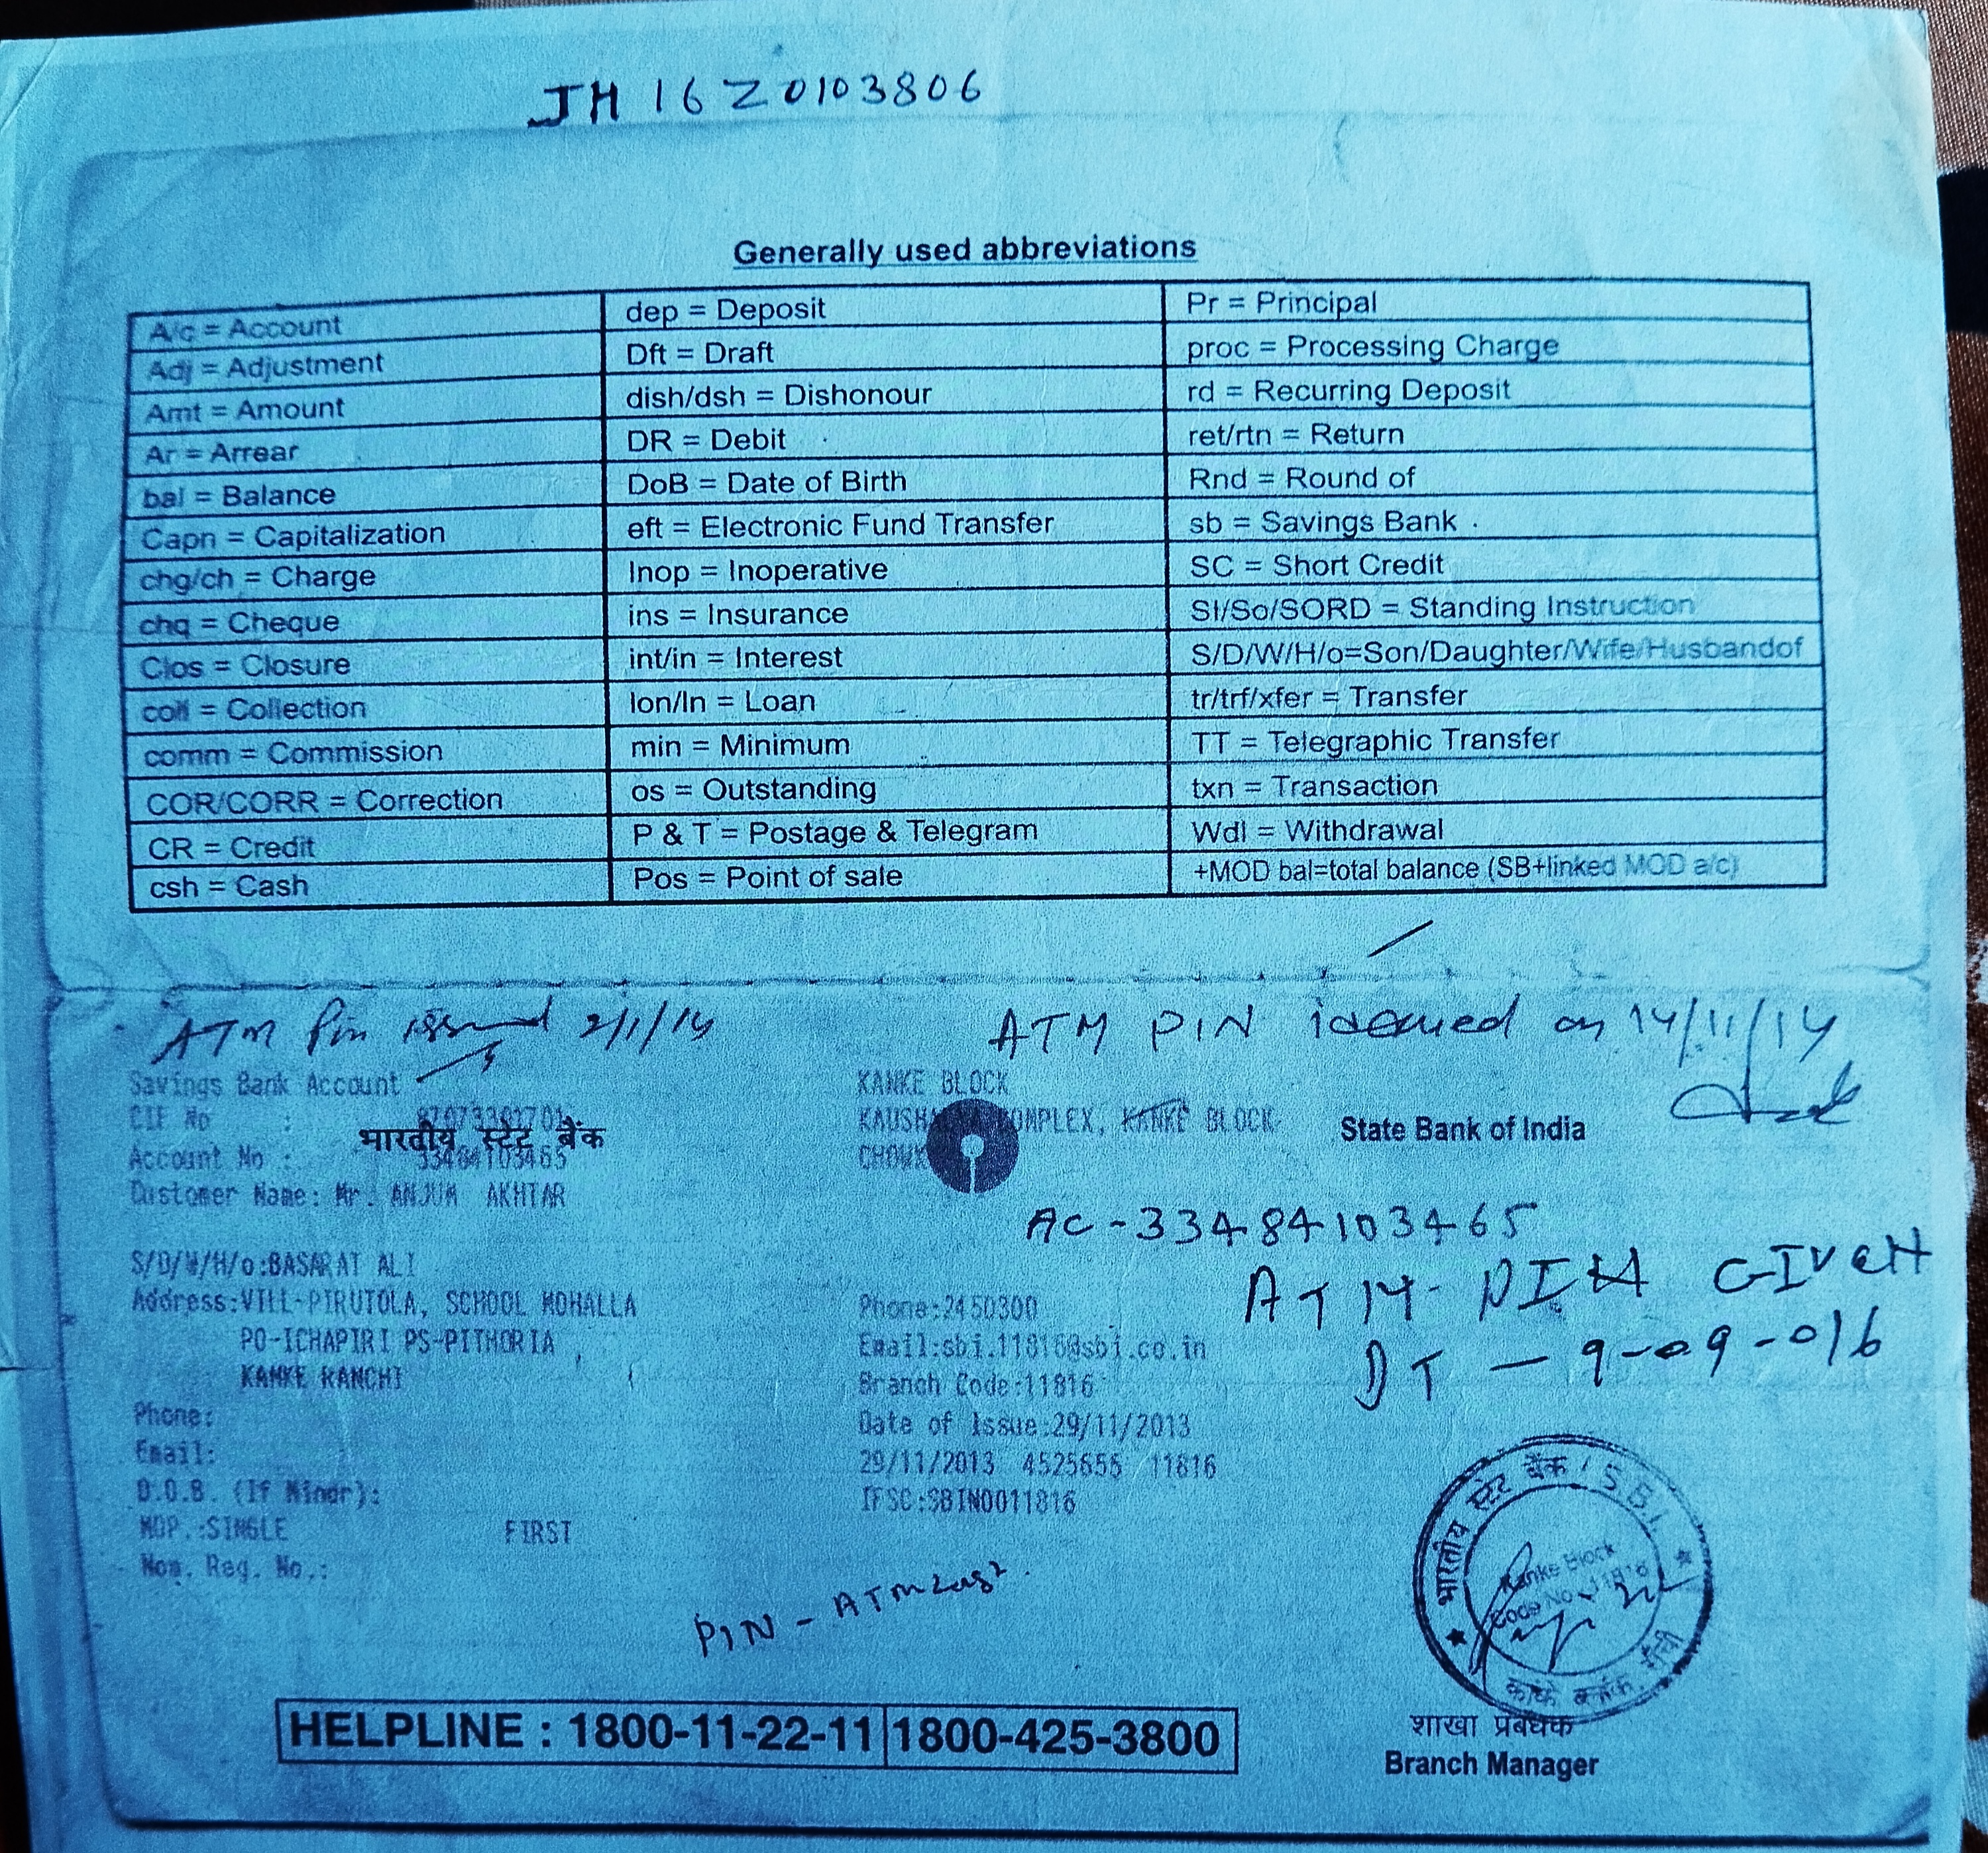 JH 16 Z 0103806
Generally used abbreviations
A/c = Account
Adj = Adjustment
Amt = Amount
Ar = Arrear
bal = Balance
Capn = Capitalization
chg/ch = Charge
chq = Cheque
Clos = Closure
coll = Collection
comm = Commission
COR/CORR = Correction
CR = Credit
csh = Cash
dep = Deposit
Dft = Draft
dish/dsh = Dishonour
DR = Debit
DoB = Date of Birth
eft = Electronic Fund Transfer
Inop = Inoperative
ins = Insurance
int/in = Interest
lon/ln = Loan
min = Minimum
os = Outstanding
P & T = Postage & Telegram
Pos = Point of sale
Pr = Principal
proc = Processing Charge
rd = Recurring Deposit
ret/rtn = Return
Rnd = Round of
sb = Savings Bank
SC = Short Credit
SI/So/SORD = Standing Instruction
S/D/W/H/o=Son/Daughter/Wife/Husbandof
tr/trf/xfer = Transfer
TT = Telegraphic Transfer
txn = Transaction
Wdl = Withdrawal
+MOD bal=total balance (SB+linked MOD a/c)
ATM Pin issued 2/1/14
ATM PIN on 14/11/14
Savings Bank Account
CIF No :
भारतीय स्टेट बैंक
Account No : 33484103465
Customer Name: Mr. ANJUM AKHTAR
S/D/W/H/o:BASARAT ALI
Address:VILL-PIRUTOLA, SCHOOL MOHALLA
PO-ICHAPIRI PS-PITHORIA
KANKE RANCHI
Phone:
Email:
D.O.B. (If Minor):
MOP.:SINGLE FIRST
Nom. Reg. No.:
KANKE BLOCK
COMPLEX, KANKE BLOCK
CHOWK
State Bank of India
AC-33484103465
ATM-PIN GIVEN
DT - 9-09-016
Phone:2450300
Email:sbi.11816@sbi.co.in
Branch Code:11816
Date of Issue:29/11/2013
29/11/2013 4525655 11816
IFSC:SBIN0011816
PIN - ATM
भारतीय स्टेट बैंक / S.B.I.
Kanke Block
Code No. 11816
कांके ब्लॉक, राँची
HELPLINE : 1800-11-22-11 1800-425-3800
शाखा प्रबंधक
Branch Manager